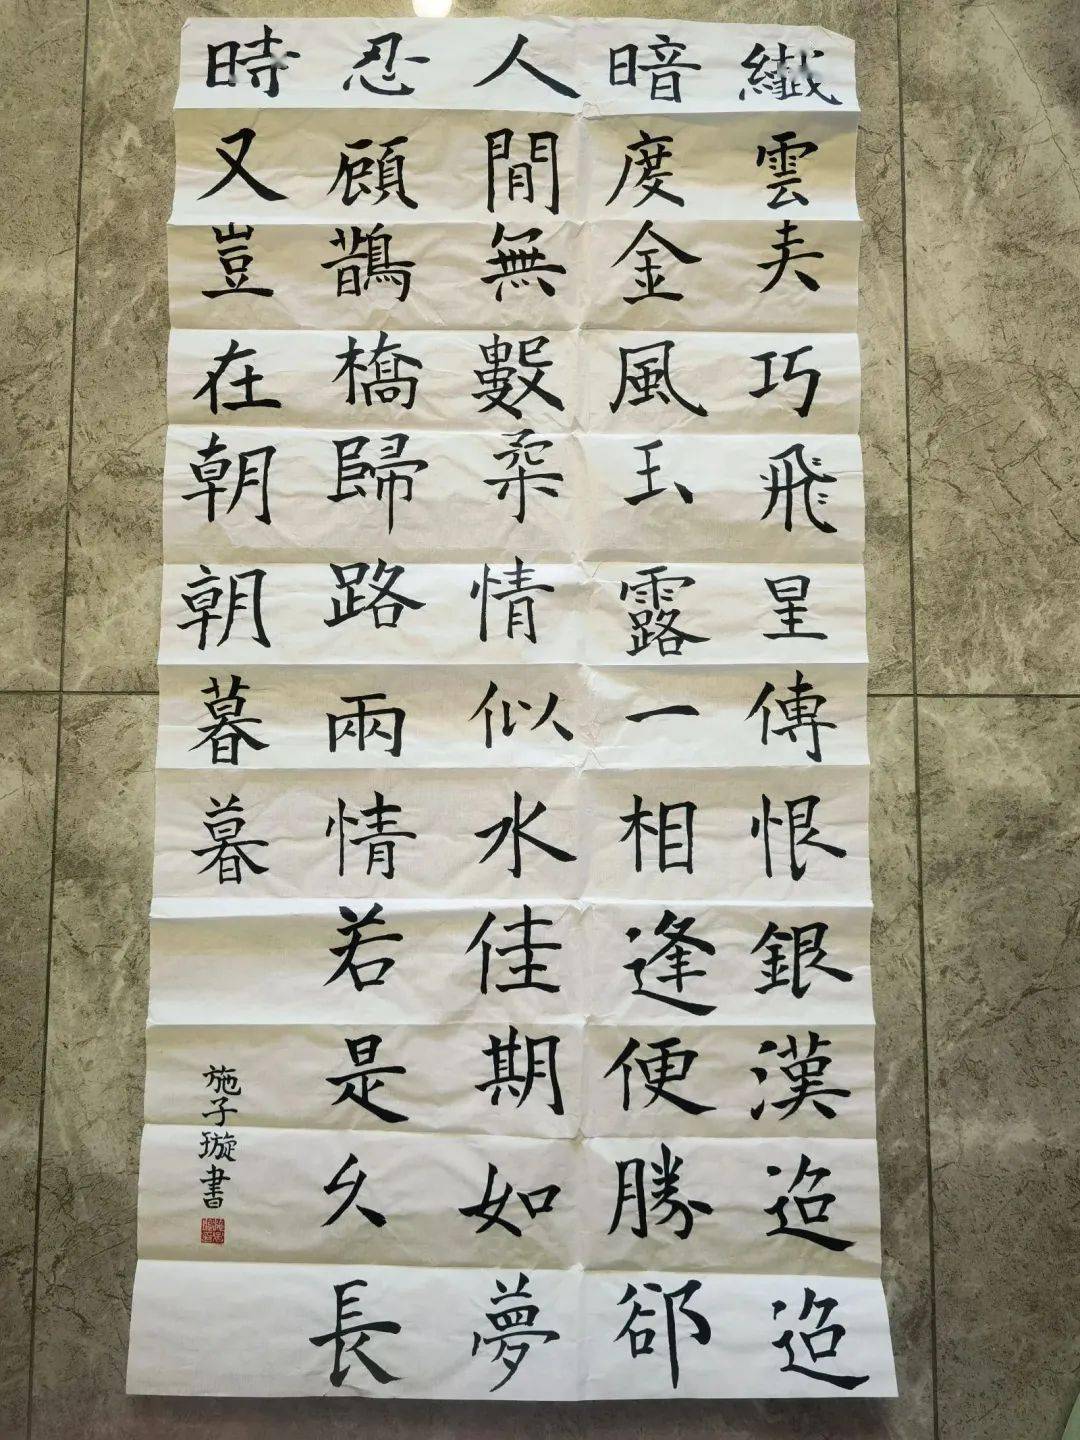 纖雲弄巧飛星傳恨銀漢迢迢
暗度金風玉露一相逢便勝郤
人閒無數柔情似水佳期如夢
忍顧鵲橋歸路兩情若是久長
時又豈在朝朝暮暮
施子璇書